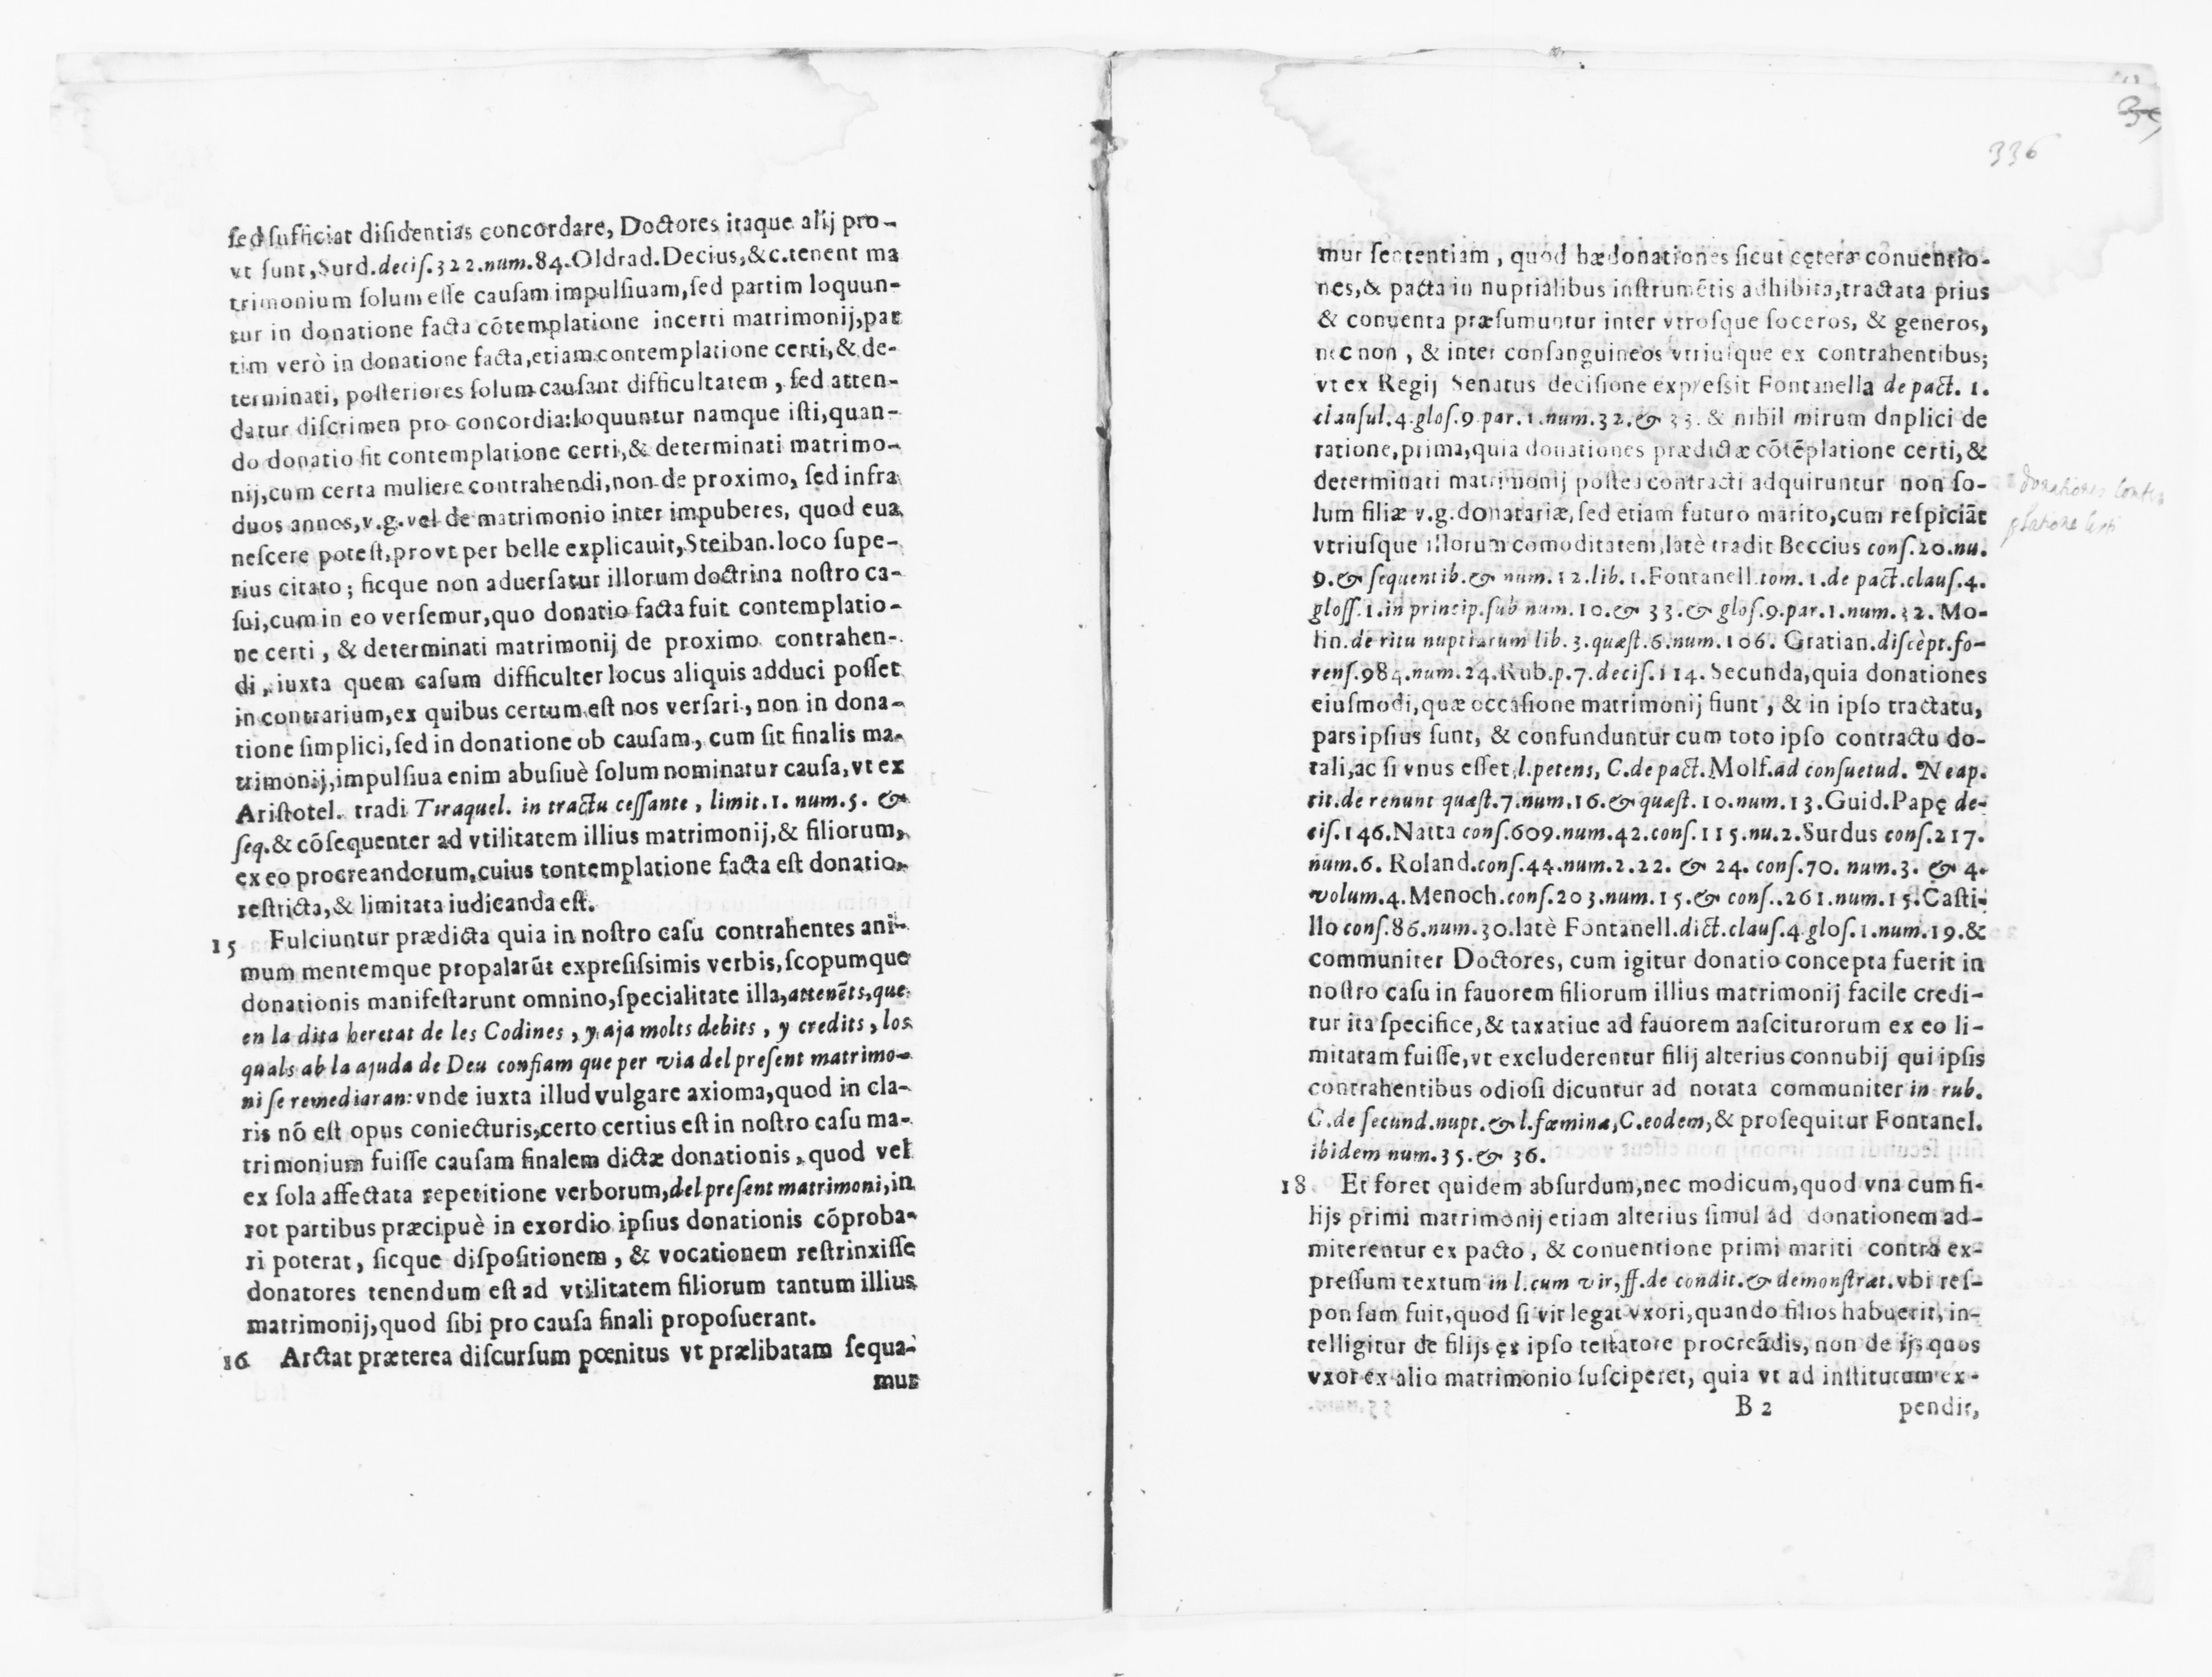 sed sufficiat disidentias concordare, Doctores itaque alij pro-
vt sunt, Surd. decis. 322. num. 84. Oldrad. Decius, &c. tenent ma
trimonium solum esse causam impulsiuam, sed partim loquun-
tur in donatione facta cõtemplatione incerti matrimonij, par
tim verò in donatione facta, etiam contemplatione certi, & de-
terminati, posteriores solum causant difficultatem, sed atten-
datur discrimen pro concordia: loquuntur namque isti, quan-
do donatio sit contemplatione certi, & determinati matrimo-
nij, cum certa muliere contrahendi, non de proximo, sed infra
duos annos, v.g. vel de matrimonio inter impuberes, quod eua
nescere potest, provt per belle explicauit, Steiban. loco supe-
rius citato; sicque non aduersatur illorum doctrina nostro ca-
sui, cum in eo versemur, quo donatio facta fuit contemplatio-
ne certi, & determinati matrimonij de proximo contrahen-
di, iuxta quem casum difficulter locus aliquis adduci posset
in contrarium, ex quibus certum est nos versari, non in dona-
tione simplici, sed in donatione ob causam, cum sit finalis ma-
trimonij, impulsiua enim abusiuè solum nominatur causa, vt ex
Aristotel. tradi Tiraquel. in tractu cessante, limit. 1. num. 5. &
seq. & cõsequenter ad vtilitatem illius matrimonij, & filiorum,
ex eo procreandorum, cuius tontemplatione facta est donatio,
restricta, & limitata iudicanda est.
15 Fulciuntur prædicta quia in nostro casu contrahentes ani-
mum mentemque propalarũt expresissimis verbis, scopumque
donationis manifestarunt omnino, specialitate illa, attenẽts, que
en la dita heretat de les Codines, y aja molts debits, y credits, los
quals ab la ajuda de Deu confiam que per via del present matrimo-
ni se remediaran: vnde iuxta illud vulgare axioma, quod in cla-
ris nõ est opus coniecturis, certo certius est in nostro casu ma-
trimonium fuisse causam finalem dictæ donationis, quod vel
ex sola affectata repetitione verborum, del present matrimoni, in
tot partibus præcipuè in exordio ipsius donationis cõproba-
ri poterat, sicque dispositionem, & vocationem restrinxisse
donatores tenendum est ad vtilitatem filiorum tantum illius
matrimonij, quod sibi pro causa finali proposuerant.
16 Arctat præterea discursum pœnitus vt prælibatam sequa-
mur
336
mur sententiam, quod hæ donationes sicut cęteræ conuentio-
nes, & pacta in nuptialibus instrumẽtis adhibita, tractata prius
& conuenta præsumuntur inter vtrosque soceros, & generos,
nec non, & inter consanguineos vtriusque ex contrahentibus;
vt ex Regij Senatus decisione expressit Fontanella de pact. 1.
clausul. 4. glos. 9. par. 1. num. 32. & 33. & nihil mirum dnplici de
ratione, prima, quia donationes prædictæ cõtẽplatione certi, &
determinati matrimonij postea contracti adquiruntur non so-
lum filiæ v.g. donatariæ, sed etiam futuro marito, cum respiciãt
vtriusque illorum comoditatem, latè tradit Beccius cons. 20. nu.
9. & sequentib. & num. 12. lib. 1. Fontanell. tom. 1. de pact. claus. 4.
gloss. 1. in princip. sub num. 10. & 33. & glos. 9. par. 1. num. 32. Mo-
lin. de ritu nuptiarum lib. 3. quæst. 6. num. 106. Gratian. discèpt. fo-
rens. 984. num. 24. Rub. p. 7. decis. 114. Secunda, quia donationes
eiusmodi, quæ occasione matrimonij fiunt, & in ipso tractatu,
pars ipsius sunt, & confunduntur cum toto ipso contractu do-
tali, ac si vnus esset, l. petens, C. de pact. Molf. ad consuetud. Neap.
tit. de renunt quæst. 7. num. 16. & quæst. 10. num. 13. Guid. Papę de-
cis. 146. Natta cons. 609. num. 42. cons. 115. nu. 2. Surdus cons. 217.
num. 6. Roland. cons. 44. num. 2. 22. & 24. cons. 70. num. 3. & 4.
volum. 4. Menoch. cons. 203. num. 15. & cons.. 261. num. 15. Casti-
llo cons. 86. num. 30. latè Fontanell. dict. claus. 4. glos. 1. num. 19. &
communiter Doctores, cum igitur donatio concepta fuerit in
nostro casu in fauorem filiorum illius matrimonij facile credi-
tur ita specifice, & taxatiue ad fauorem nasciturorum ex eo li-
mitatam fuisse, vt excluderentur filij alterius connubij qui ipsis
contrahentibus odiosi dicuntur ad notata communiter in rub.
C. de secund. nupt. & l. fœmina, C. eodem, & prosequitur Fontanel.
ibidem num. 35. & 36.
donationes contem
platione certi
18 Et foret quidem absurdum, nec modicum, quod vna cum fi-
lijs primi matrimonij etiam alterius simul ad donationem ad-
miterentur ex pacto, & conuentione primi mariti contra ex-
pressum textum in l. cum vir, ff. de condit. & demonstrat. vbi res-
ponsum fuit, quod si vir legat vxori, quando filios habuerit, in-
telligitur de filijs ęx ipso testatore procreãdis, non de ijs quos
vxor ex alio matrimonio susciperet, quia vt ad institutum ex-
B 2 pendit,